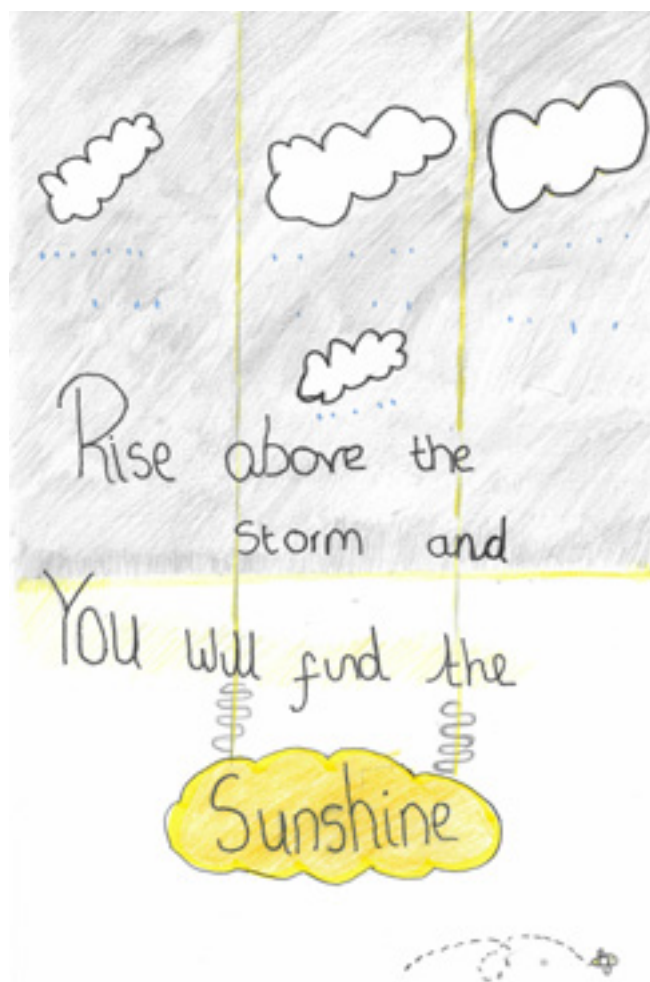 Rise above the
storm and
You will find the
Sunshine